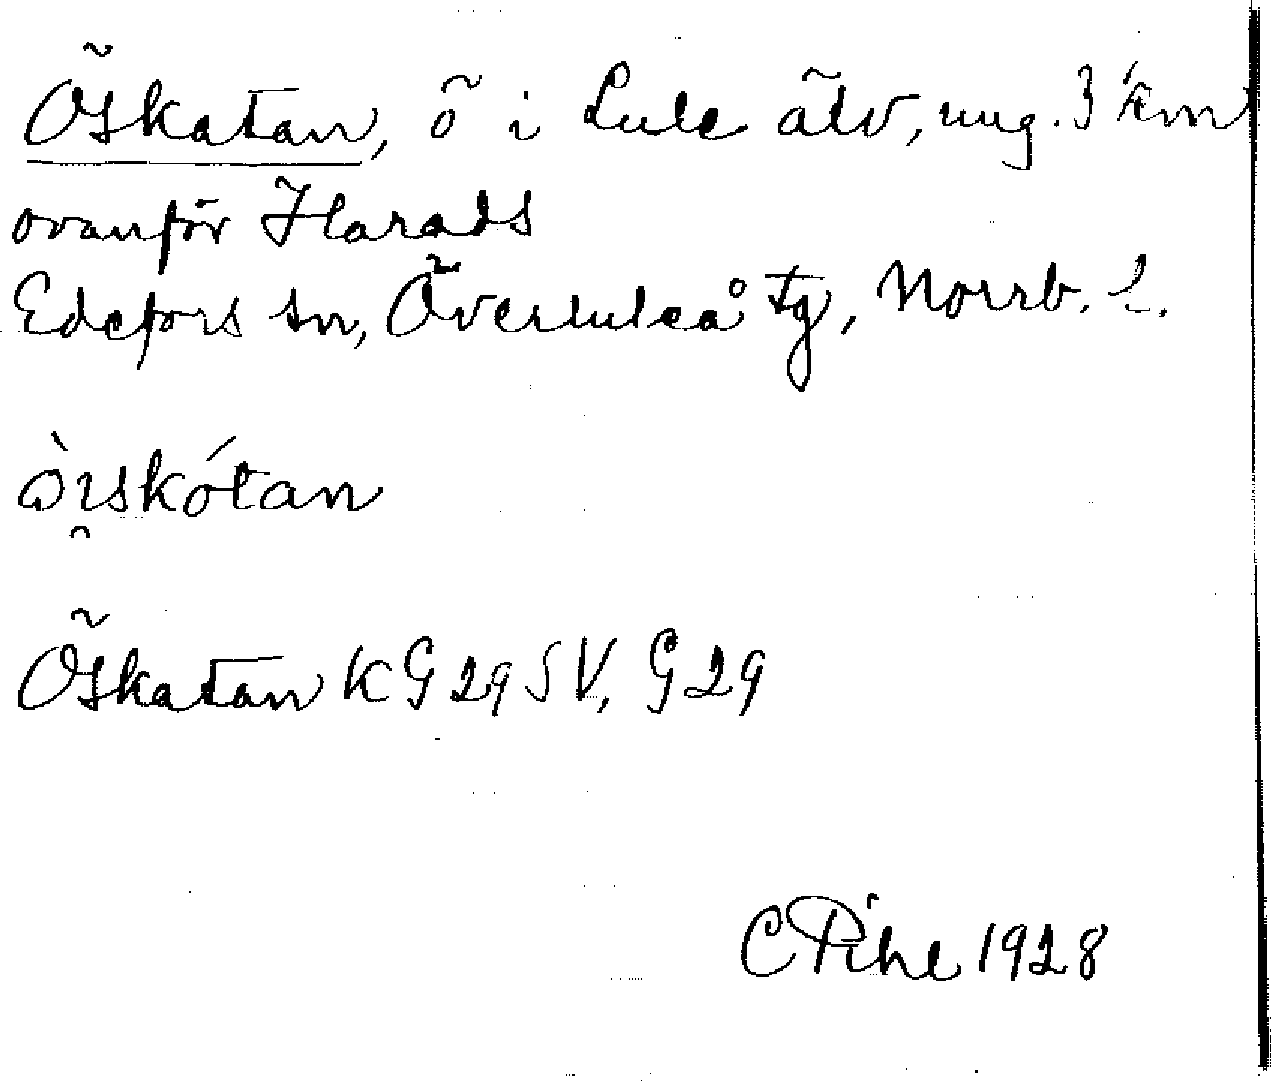 Öskatan, ö i Lule älv, ung. 3 km
ovanför Harads
Edefors sn, Överluleå tg, Norrb. l.
ɷ̀rskɷ́tan
Öskatan KG 29 SV, G 29
C Pihl 1928